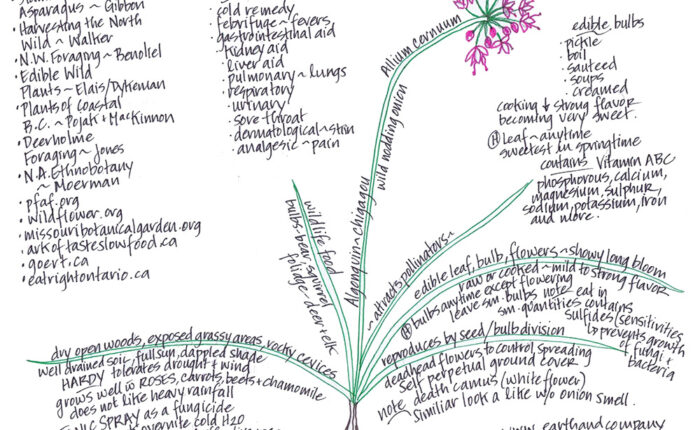 Asparagus ~ Gibbon
• Harvesting the North
Wild ~ Walker
• N.W. Foraging ~ Benoliel
• Edible Wild
Plants ~ Elais/Dykeman
• Plants of Coastal
B.C. ~ Pojak + MacKinnon
• Deerholme
Foraging ~ Jones
• N.A. Ethnobotany
~ Moerman
• pfaf.org
• wildflower.org
• missouribotanicalgarden.org
• arkoftasteslowfood.ca
• goert.ca
• eatrightontario.ca
• cold remedy
• febrifuge ~ fevers
• gastrointestinal aid
• kidney aid
• liver aid
• pulmonary ~ lungs
• respiratory
• urinary
• sore throat
• dermatological ~ skin
• analgesic ~ pain
Allium cernuum
wild nodding onion
Algonquin ~ chigagou
edible bulbs
• pickle
• boil
• sauteed
• soups
• creamed
cooking ↓ strong flavor
becoming very sweet.
Ⓗ leaf ~ anytime
sweetest in springtime
contains Vitamin ABC
phosphorous, calcium,
magnesium, sulphur,
sodium, potassium, iron
and more.
wildlife food
bulbs-bear, squirrel
foliage-deer + elk
~ attracts pollinators ~
edible leaf, bulb, flowers ~ showy long bloom
raw or cooked ~ mild to strong flavor
Ⓗ bulbs anytime except flowering
leave sm. bulbs note eat in
sm. quantities contains
sulfides/sensitivities
↳ prevents growth
of fungi +
bacteria
reproduces by seed/bulb division
deadhead flowers to control spreading
self perpetual ground cover
note death camus (white flower)
similiar look a like w/o onion smell.
dry open woods, exposed grassy areas, rocky crevices
well drained soil, full sun, dappled shade
HARDY tolerates drought + wind
grows well w ROSES, carrots, beets + chamomile
does not like heavy rainfall
TONIC SPRAY as a fungicide
overnite cold H2O
www.earthandcompany